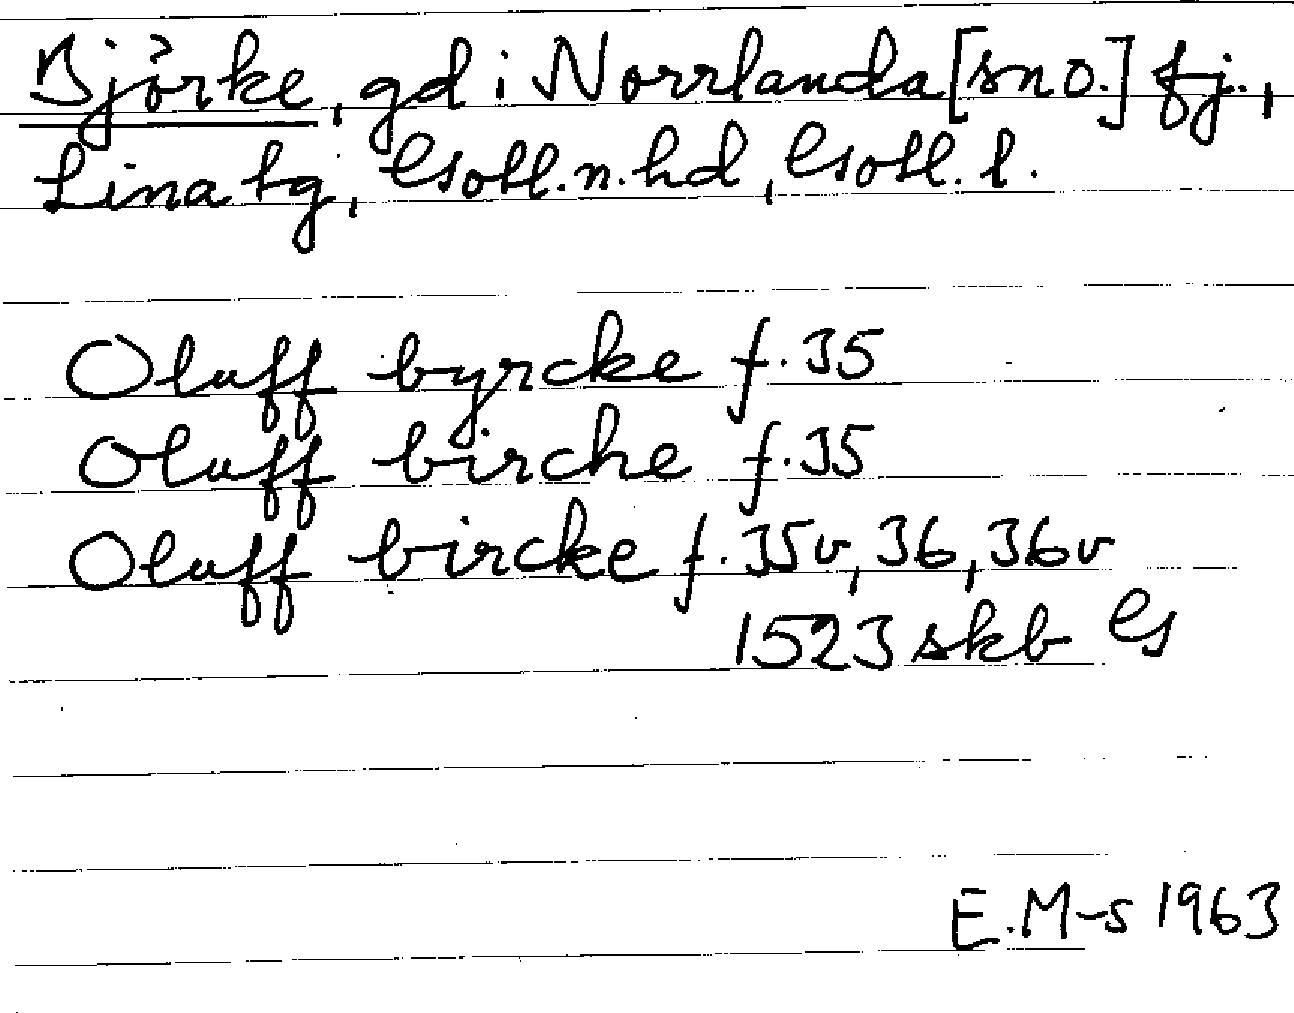 Björke, gd i Norrlanda [sn o.] fj.,
Lina tg, Gotl. n. hd, Gotl. l.
Oluff byrcke f. 35
Oluff birche f. 35
Oluff bircke f. 35v, 36, 36v
1523 skb G
E.M-s 1963